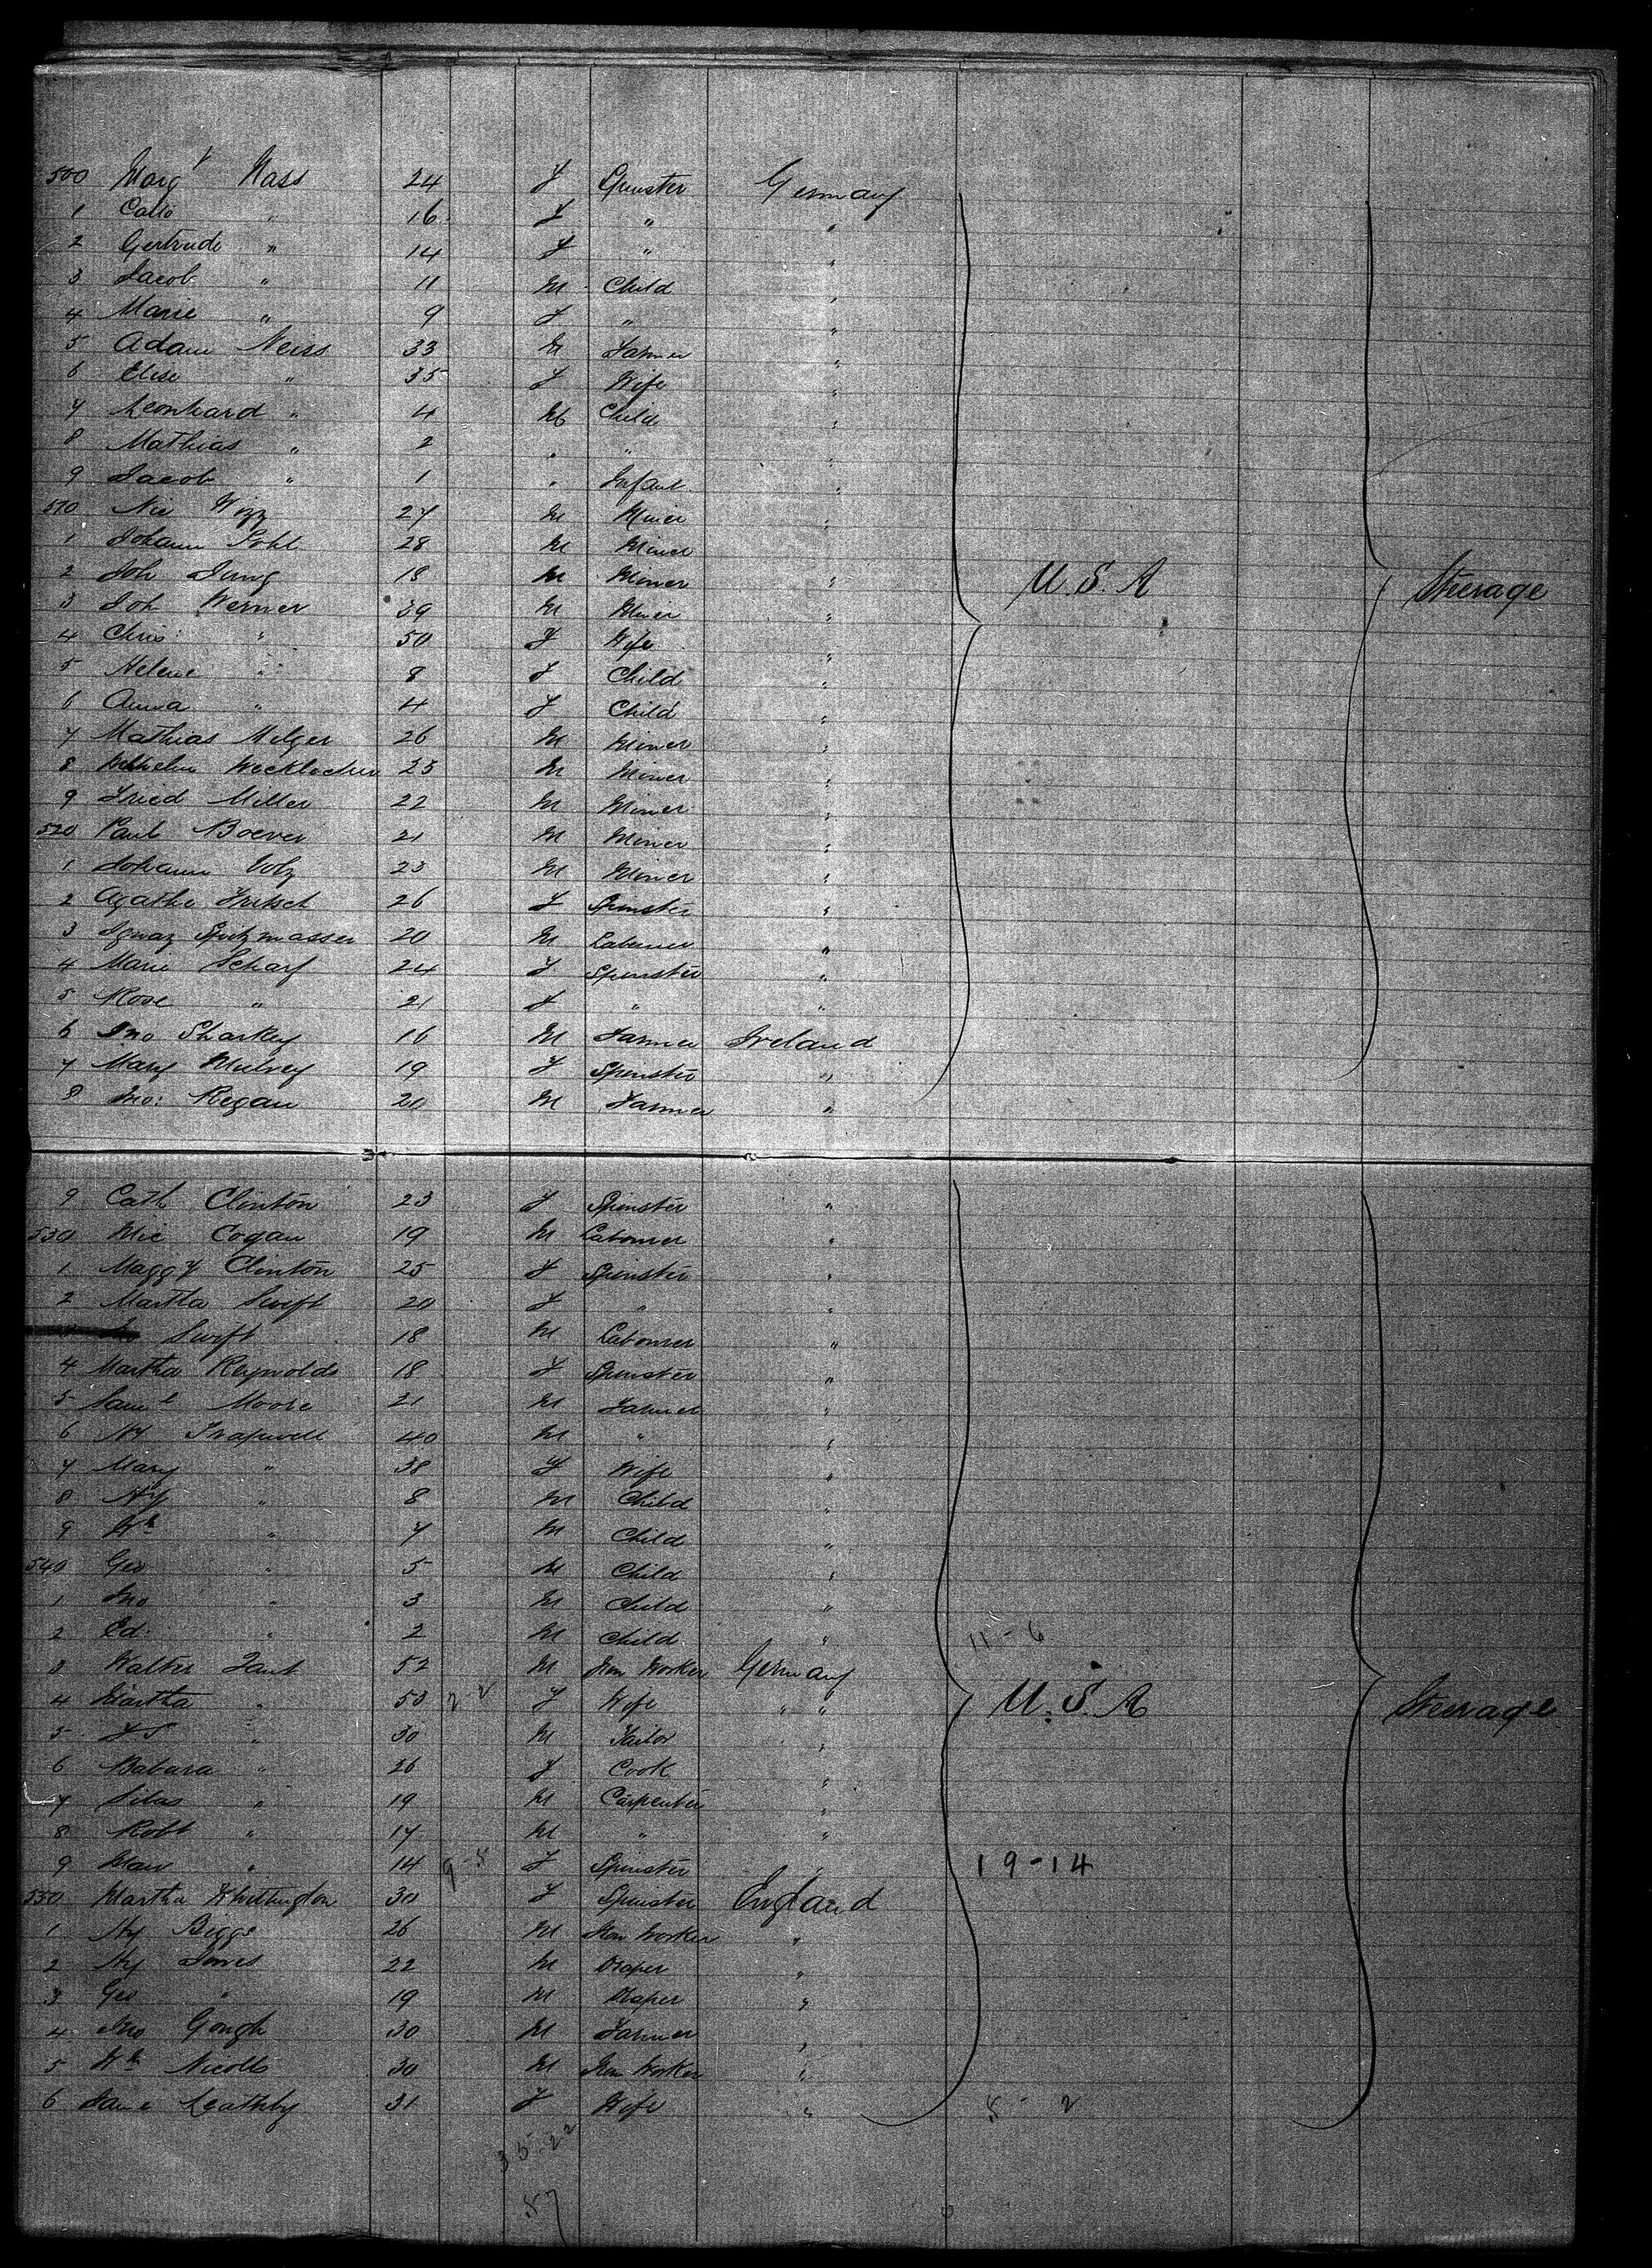 500 Marg't Nass 24 F Spinster Germany
1 " 16 F " "
2 Gertrude " 14 F " "
3 Jacob " 11 M Child "
4 Marie " 9 F " "
5 Adam Neiss 33 M Farmer "
6 Elise " 35 F Wife "
7 Leonhard " 4 M Child "
8 Mathias " 2 " " "
9 Jacob " 1 " Infant "
510 Nic 27 M Miner "
1 Johann Pohl 28 M Miner
2 Joh Jung 18 M Miner " U.S.A Steerage
3 Joh Werner 39 M Miner "
4 Chris: " 50 F Wife "
5 Helene " 8 F Child "
6 Anna " 4 F Child "
7 Mathias Melger 26 M Miner "
8 Wilhelm 25 M Miner "
9 Fried Miller 22 M Miner "
520 Paul Boever 21 M Miner "
1 Johann Volz 23 M Miner "
2 Agathe Fritsch 26 F Spinster "
3 Ignaz 20 M Labourer "
4 Marie Scharf 24 F Spinster "
5 Rose " 21 F " "
6 Jno Sharkey 16 M Farmer Ireland
7 Mary Mulvey 19 F Spinster "
8 Jno: Regan 20 M Farmer "
9 Cath Clinton 23 F Spinster "
530 Mic Cogan 19 M Labourer "
1 Maggy Clinton 25 F Spinster "
2 Martha Swift 20 F " "
Swift 18 M Labourer "
4 Martha Reynolds 18 F Spinster "
5 Sam'l Moore 21 M Farmer "
6 Hy Trapwell 40 M " "
7 Mary " 38 F Wife "
8 Hy " 8 M Child "
9 Wm " 7 M Child "
540 Geo " 5 M Child "
1 Jno " 3 M Child "
2 Ed: " 2 M Child " 11-6
3 Walter 52 M Iron Worker Germany
4 Martha " 53 2-2 F Wife " " U.S.A Steerage
5 " 30 M Tailor "
6 Babara " 26 F Cook "
7 Silas " 19 M Carpenter "
8 Robt " 17 M " "
9 " 14 9-5 F Spinster " 19-14
550 Martha Whittington 30 F Spinster England
1 Hy Biggs 26 M Iron Worker "
2 Hy Jones 22 M Draper "
3 Geo " 19 M Draper "
4 Jno Gough 30 M Farmer "
5 Wm Nicolls 30 M Iron Worker "
6 Jane Leathby 31 F Wife " 5-2
35-22
57